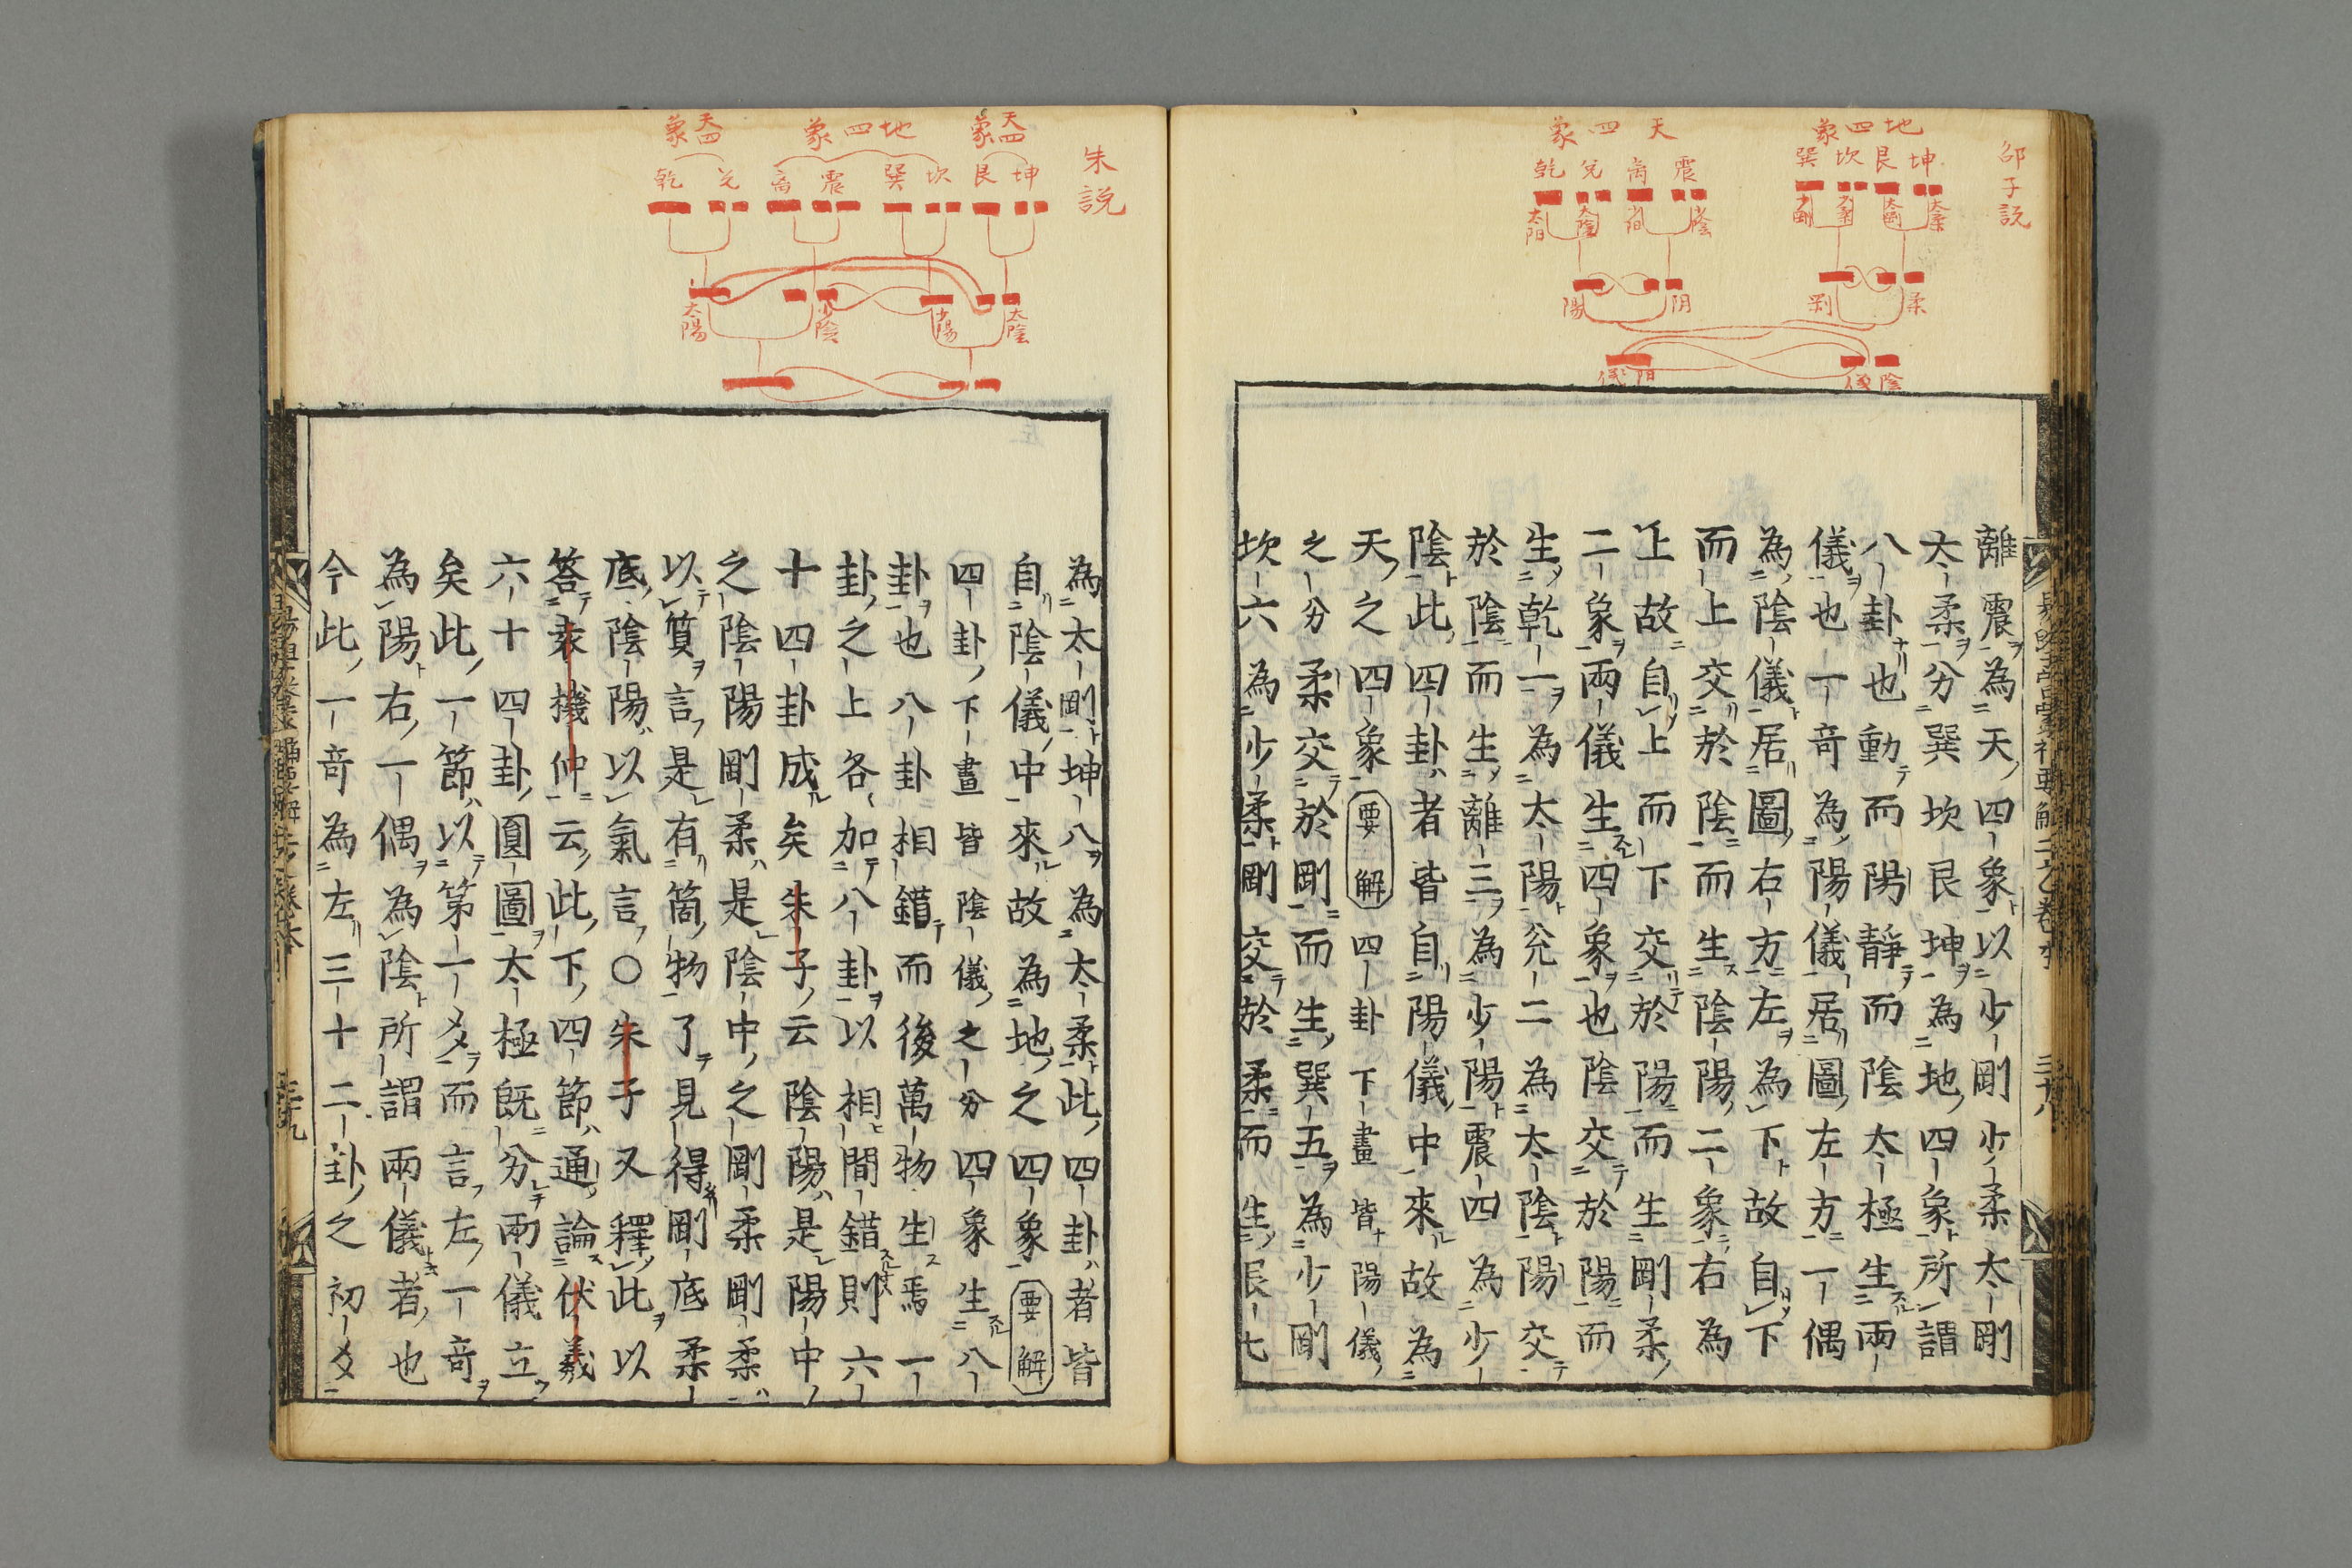 邵子説
地四象
坤艮坎巽
太柔 太剛 少柔 少剛
柔 剛
陰儀
天四象
震离兌乾
少陰 少阳 太陰 太阳
阴 陽
阳儀
離震為天四象以少剛少柔太剛
太柔分巽坎艮坤為地四象所謂
八卦也動而陽靜而陰太極生兩
儀也一奇為陽儀居圖左方一偶
為陰儀居圖右方左為下故自下
而上交於陰而生陰陽二象右為
上故自上而下交於陽而生剛柔
二象兩儀生四象也陰交於陽而
生乾一為太陽兌二為太陰陽交
於陰而生離三為少陽震四為少
陰此四卦者皆自陽儀中來故為
天之四象 要解 四卦下畫皆陽儀
之分柔交於剛而生巽五為少剛
坎六為少柔剛交於柔而生艮七
三十八
朱説
天四象
坤艮
地四象
坎巽震离
天四象
兌乾
太陰 少陽 少陰 太陽
為太剛坤八為太柔此四卦者皆
自陰儀中來故為地之四象 要解
四卦下畫皆陰儀之分四象生八
卦也八卦相錯而後萬物生焉一
卦之上各加八卦以相間錯則六
十四卦成矣朱子云陰陽是陽中
之陰陽剛柔是陰中之剛柔剛柔
以質言是有箇物了見得剛底柔
底陰陽以氣言〇朱子又釋此以
答袁機仲云此下四節通論伏羲
六十四卦圓圖太極既分兩儀立
矣此一節以第一爻而言左一奇
為陽右一偶為陰所謂兩儀者也
今此一奇為左三十二卦之初爻
三十九